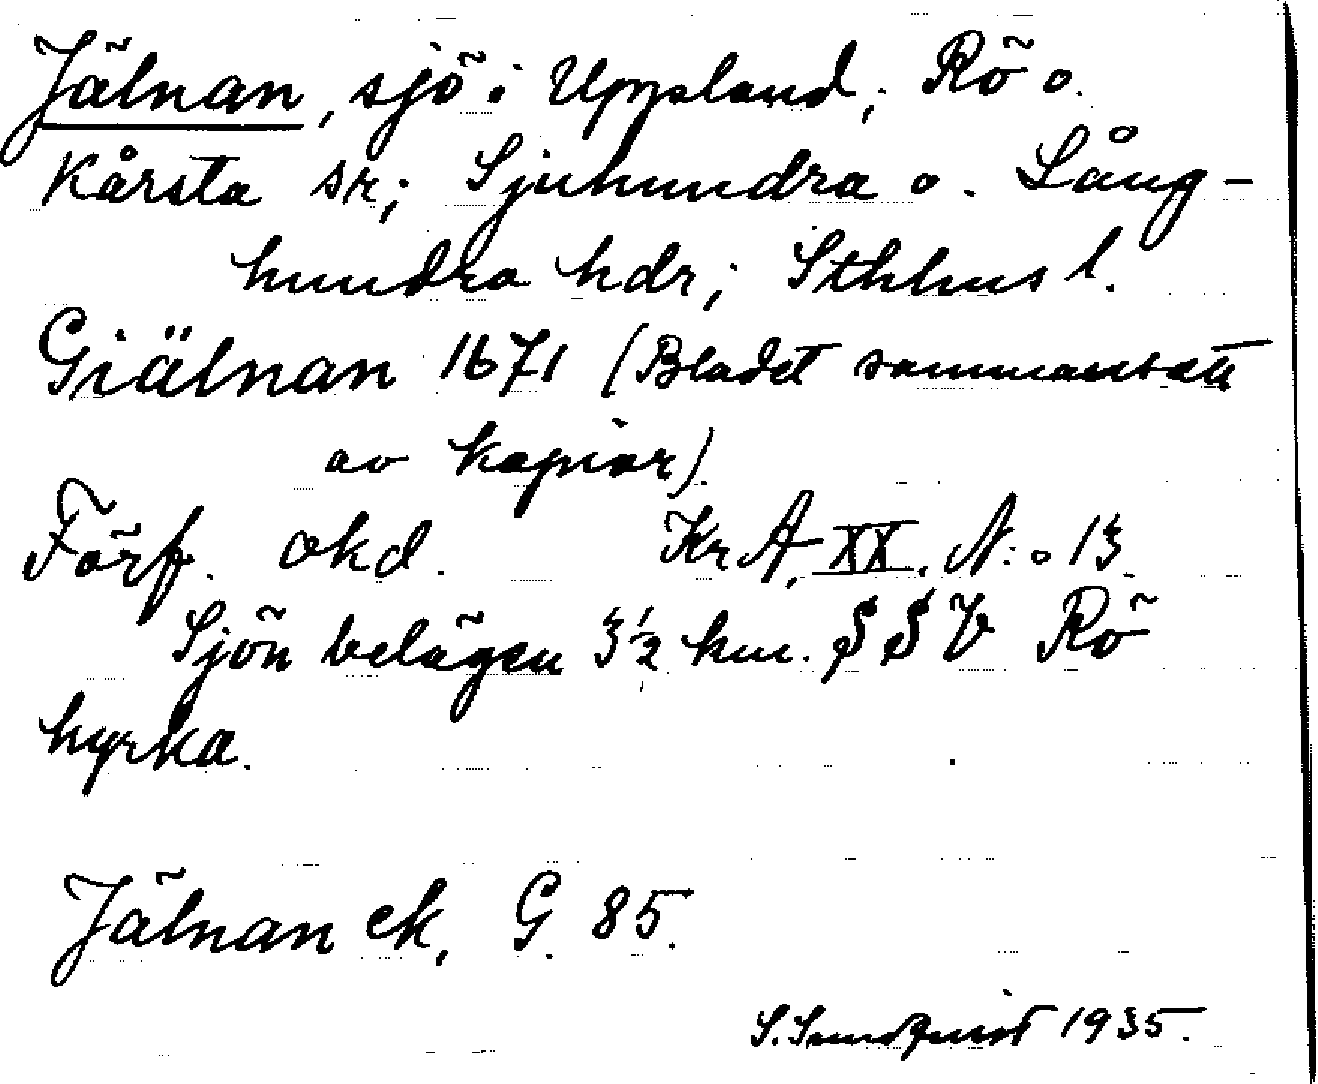 Jälnan, sjö i Uppland; Rö o.
Kårsta sr; Sjuhundra o. Lång-
hundra hdr; Sthlms l.
Giälnan 1671 (Bladet sammansatt
av kopior)
Förf. okd. Kr A. XX. N:o 13
Sjön belägen 3 1/2 km. SSV Rö
kyrka.
Jälnan ek, G. 85.
S. Sundquist 1935.